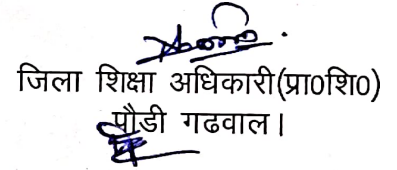 जिला शिक्षा अधिकारी(प्रा0शि0)
पौडी गढवाल।